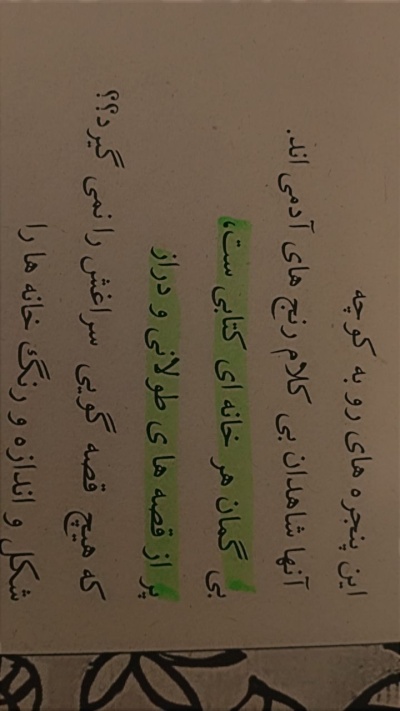 این پنجره های رو به کوچه
آنها شاهدان بی کلام رنج های آدمی اند.
بی گمان هر خانه ای کتابی ست،
پر از قصه ها ی طولانی و دراز
که هیچ قصه گویی سراغش را نمی گیرد؟؟
شکل و اندازه و رنگ خانه ها را